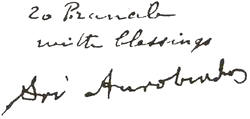 To Pranab
with blessings
Sri Aurobindo